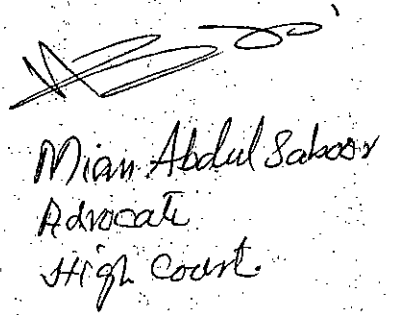 Mian Abdul Saboor
Advocate
High Court.